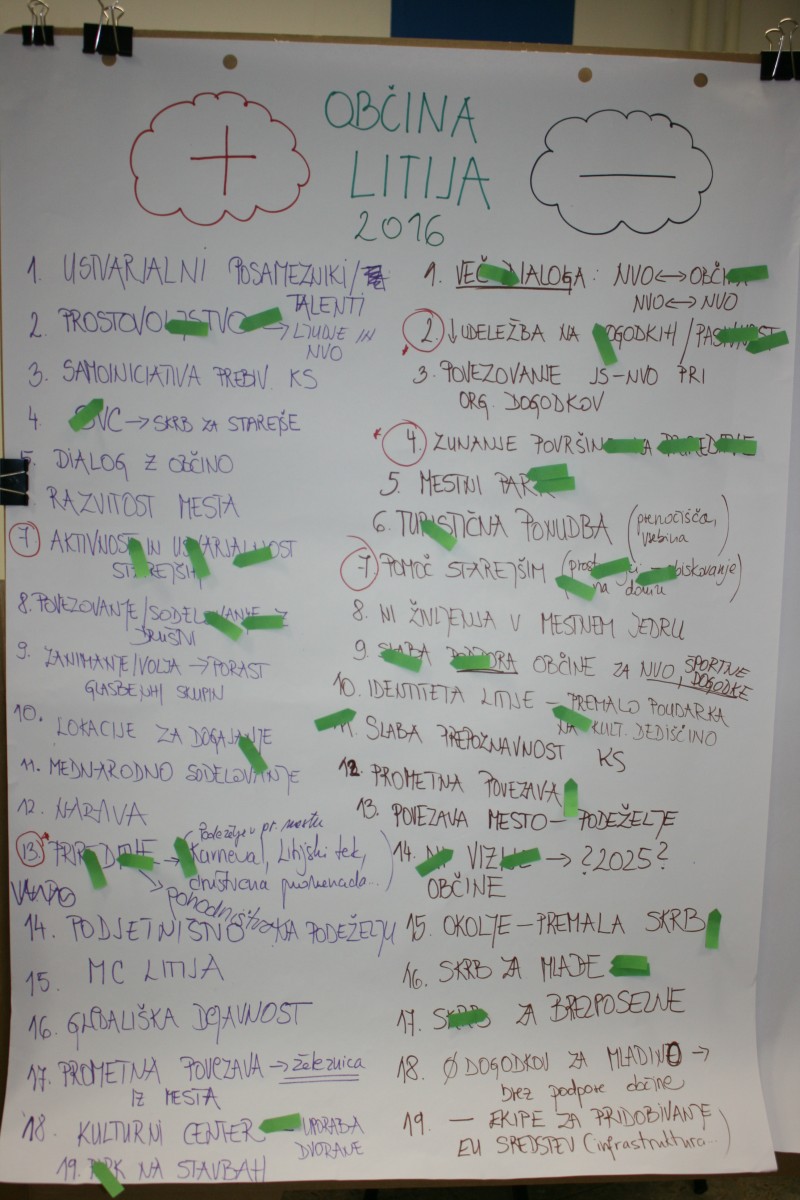 OBČINA
LITIJA
2016
+
1. USTVARJALNI POSAMEZNIKI/
TALENTI
2. PROSTOVOLJSTVO → LJUDJE IN
NVO
3. SAMOINICIATIVA PREBIV. KS
4. SVC → SKRB ZA STAREJŠE
5. DIALOG Z OBČINO
RAZVITOST MESTA
7 AKTIVNOST IN USTVARJALNOST
STAREJŠIH
8. POVEZOVANJE/SODELOVANJE Z
DRUŠTVI
9. ZANIMANJE/VOLJA → PORAST
GLASBENIH SKUPIN
10. LOKACIJE ZA DOGAJANJE
11. MEDNARODNO SODELOVANJE
12. NARAVA
13. PRIREDITVE → (Podeželje v pr. mestu
Karneval, Litijski tek,
društvena promenada...)
Pohodništvo
14. PODJETNIŠTVO NA PODEŽELJU
15. MC LITIJA
16. GLEDALIŠKA DEJAVNOST
17. PROMETNA POVEZAVA → železnica
IZ MESTA
18. KULTURNI CENTER – UPORABA
DVORANE
19. PARK NA STAVBAH
—
1. VEČ DIALOGA: NVO ↔ OBČINA
NVO ↔ NVO
2. ↓ UDELEŽBA NA DOGODKIH / PASIVNOST
3. POVEZOVANJE JS-NVO PRI
ORG. DOGODKOV
4. ZUNANJE POVRŠINE ZA PRIREDITVE
5. MESTNI PARK
6. TURISTIČNA PONUDBA (prenočišča,
vsebina)
7 POMOČ STAREJŠIM (prostovoljci – obiskovanje
na domu)
8. NI ŽIVLJENJA V MESTNEM JEDRU
9. SLABA PODPORA OBČINE ZA NVO, ŠPORTNE
DOGODKE
10. IDENTITETA LITIJE – PREMALO POUDARKA
NA KULT. DEDIŠČINO
11. SLABA PREPOZNAVNOST KS
12. PROMETNA POVEZAVA
13. POVEZAVA MESTO – PODEŽELJE
14. NI VIZIJE → ?2025?
OBČINE
15. OKOLJE – PREMALA SKRB
16. SKRB ZA MLADE
17. SKRB ZA BREZPOSELNE
18. Ø DOGODKOV ZA MLADINO →
brez podpore občine
19. — EKIPE ZA PRIDOBIVANJE
EU SREDSTEV (infrastruktura...)